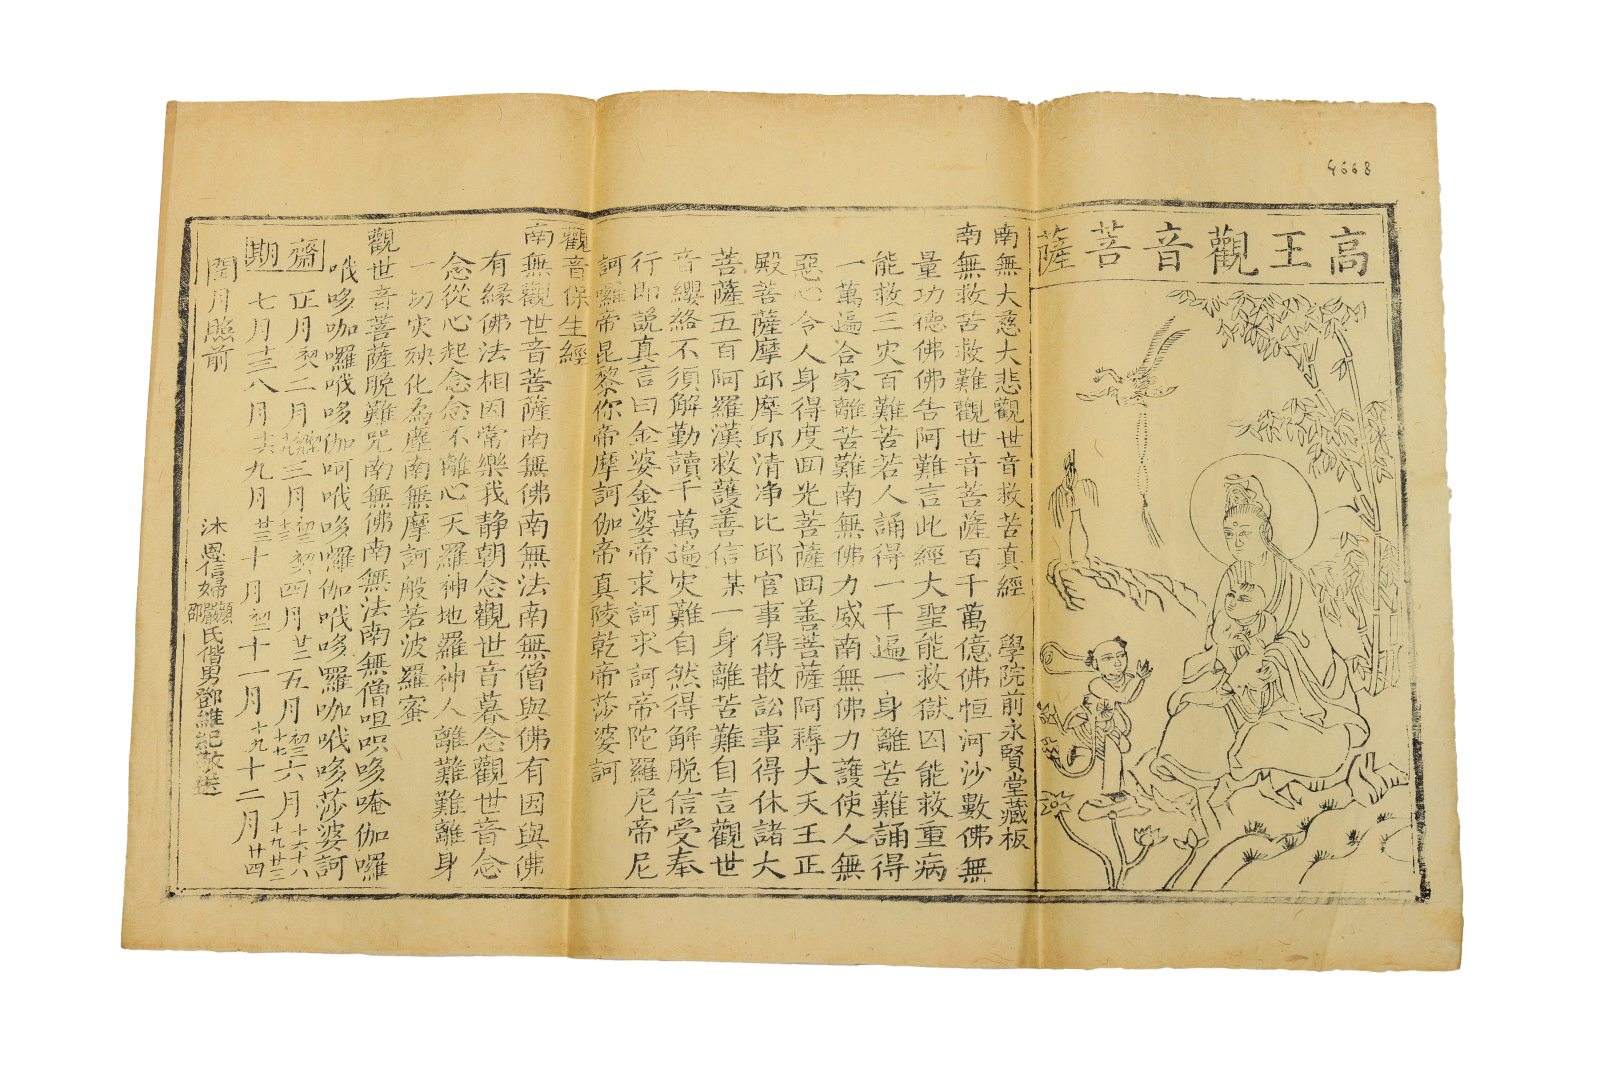 4668
高王觀音菩薩
南無大慈大悲觀世音救苦真經 學院前永賢堂藏板
南無救苦救難觀世音菩薩百千萬億佛恒河沙數佛無
量功德佛佛告阿難言此經大聖能救獄囚能救重病
能救三灾百難苦若人誦得一千遍一身離苦難誦得
一萬遍合家離苦難南無佛力威南無佛力護使人無
惡心令人身得度囬光菩薩囬善菩薩阿耨大天王正
殿菩薩摩邱摩邱清净比邱官事得散訟事得休諸大
菩薩五百阿羅漢救護善信某一身離苦難自言觀世
音纓絡不須解勤讀千萬遍灾難自然得解脫信受奉
行即說真言曰金婆金婆帝求訶求訶帝陀羅尼帝尼
訶囉帝昆黎你帝摩訶伽帝真陵乾帝莎婆訶
觀音保生經
南無觀世音菩薩南無佛南無法南無僧與佛有因與佛
有緣佛法相因常樂我静朝念觀世音暮念觀世音念
念從心起念念不離心天羅神地羅神人離難難離身
一切灾殃化為塵南無摩訶般若波羅蜜
觀世音菩薩脫難咒南無佛南無法南無僧呾呾哆唵伽囉
哦哆咖囉哦哆伽呵哦哆囉伽哦哆囉咖哦哆莎婆訶
齋期
正月初八二月三月四月廿二五月初三十七六月十六十八十九廿三
七月十三八月十六九月廿三十月初二十一月十九十二月廿四
閏月照前
沐恩信婦顏嚴邵氏偕男鄧維紀敬送